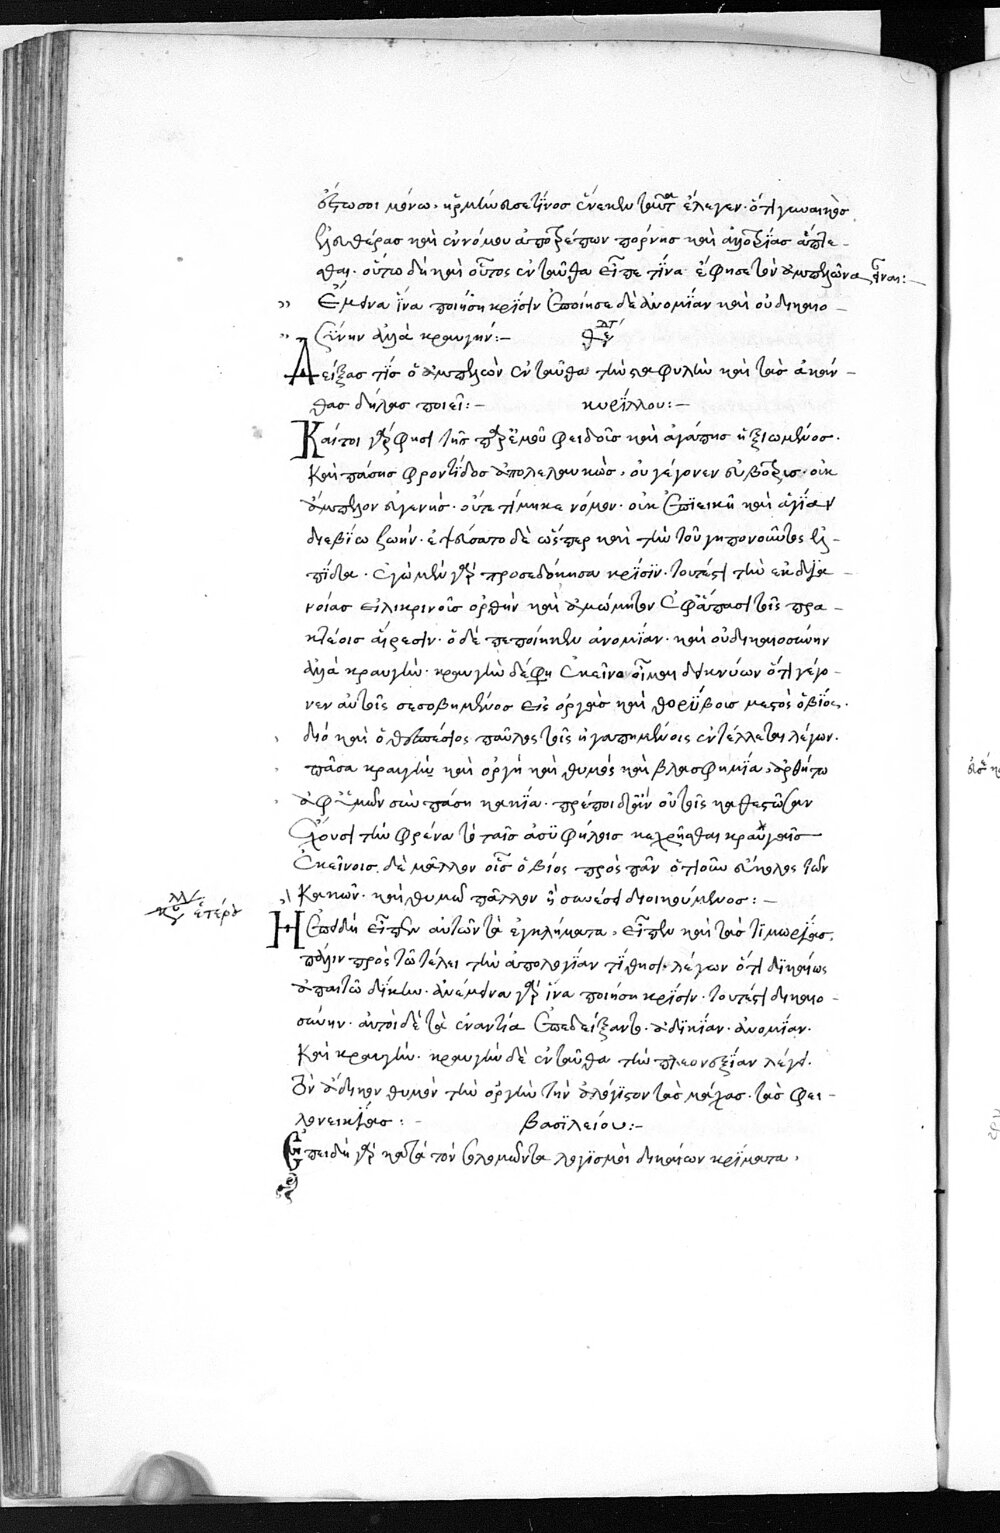 ἔστωσοι μόνω· ἡρμήνευσε τίνος ἕνεκεν ταῦτα ἔλεγεν· ὅτι γυναικὸς
ἐλευθέρας καὶ ἐννόμου ἀποτρέπων πόρνης καὶ ἀλλοτρίας ἅπτε-
σθαι· οὕτω δὴ καὶ οὗτος ἐνταῦθα εἶπε τίνα ἔφησε τὸν ἀμπελῶνα εἶναι:-
Ἔμεινα ἵνα ποιήσῃ κρίσιν ἐποίησε δὲ ἀνομίαν καὶ οὐ δικαιο-
σύνην ἀλλὰ κραυγήν:-
Δείξας τίς ὁ ἀμπελὼν ἐνταῦθα τὴν σταφυλὴν καὶ τὰς ἀκάν-
θας δήλας ποιεῖ:- κυρίλλου:-
Καίτοι γάρ φησι τῆς παρ' ἐμοῦ φειδοῦς καὶ ἀγάπης ἠξιωμένος·
καὶ πάσης φροντίδος ἀπολελαυκὼς· οὐ γέγονεν εὔβοτρυς· οὐκ
ἄμπελον εὐγενής· οὔτε τίμηκε νόμον· οὐκ ἐπιεικῆ καὶ ἁγίαν
διεβίω ζωήν· ἐψεύσατο δὲ ὥσπερ καὶ τὴν τοῦ γηπονοῦντος ἐλ-
πίδα· ἐγὼ μὲν γὰρ προσεδόκησα κρίσιν· τουτέστι τὴν ἐκ δια-
νοίας εἰλικρινοῦς ὀρθὴν καὶ ἀμώμητον ἐφ' ἅπασι τοῖς πρα-
κτέοις αἵρεσιν· ὁ δὲ πεποίηκεν ἀνομίαν· καὶ οὐ δικαιοσύνην
ἀλλὰ κραυγήν· κραυγὴν δέ φη ἐκεῖνο οἶμαι δεικνύων ὅτι γέγο-
νεν αὐτοῖς σεσοβημένος εἰς ὀργὰς καὶ θορύβοις μεστὸς ὁ βίος·
διὸ καὶ ὁ θεσπέσιος παῦλος τοῖς ἠγαπημένοις ἐντέλλεται λέγων·
πᾶσα κραυγὴ καὶ ὀργὴ καὶ θυμὸς καὶ βλασφημία, ἀρθήτω
ἀφ' ὑμῶν σὺν πάσῃ κακία· πρέποι δ' ἂν οὐ τοῖς καθεστῶσαν
ἔχουσι τὴν φρένα τὸ ταῖς ἀσυφήλοις κεχρῆσθαι κραυγαῖς
ἐκείνοις δὲ μᾶλλον οἷς ὁ βίος πρὸς πᾶν ὁτιοῦν εὔκολος τῶν
κακῶν· καὶ θυμῶ μᾶλλον ἢ συνέσει διοικούμενος:-
ἑτέρου
Ἢ ἐπειδὴ εἶπεν αὐτῶν τὰ ἐγκλήματα, εἶπεν καὶ τὰς τιμωρίας,
πάλιν πρὸς τῶ τέλει τὴν ἀπολογίαν τίθησι λέγων ὅτι δικαίως
ἀπαιτῶ δίκην· ἀνέμεινα γὰρ ἵνα ποιήσῃ κρίσιν· τουτέστι δικαιο-
σύνην· αὐτοὶ δὲ τὰ ἐναντία ἐπεδείξαντο· ἀδικίαν· ἀνομίαν·
καὶ κραυγήν· κραυγὴν δὲ ἐνταῦθα τὴν πλεονεξίαν λέγει·
τὸν ἄδικον θυμὸν τὴν ὀργὴν τὴν ἀλόγιστον τὰς μάχας· τὰς φι-
λονεικίας:- βασιλείου:-
Ἐπειδὴ γὰρ κατὰ τὸν σολομῶντα λογισμοὶ δικαίων κρίματα,